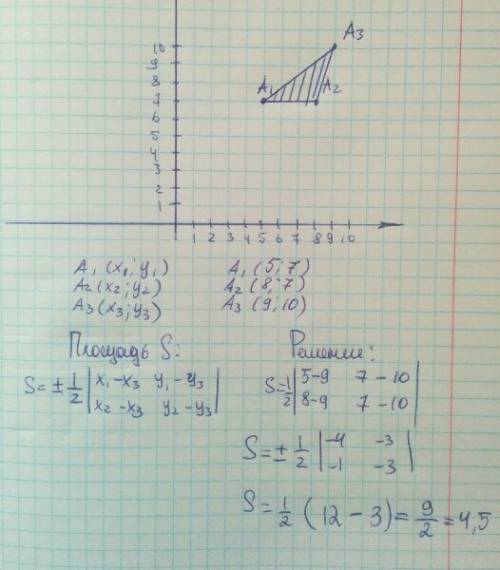 A3
10
9
8
7
6
5
4
3
2
1
A1 A2
1 2 3 4 5 6 7 8 9 10
A1 (x1; y1) A1 (5; 7)
A2 (x2; y2) A2 (8; 7)
A3 (x3; y3) A3 (9; 10)
Площадь S: Решение:
S = ± 1/2 | x1 - x3 y1 - y3 | S = 1/2 | 5-9 7-10 |
| x2 - x3 y2 - y3 | | 8-9 7-10 |
S = ± 1/2 | -4 -3 |
| -1 -3 |
S = 1/2 (12 - 3) = 9/2 = 4,5